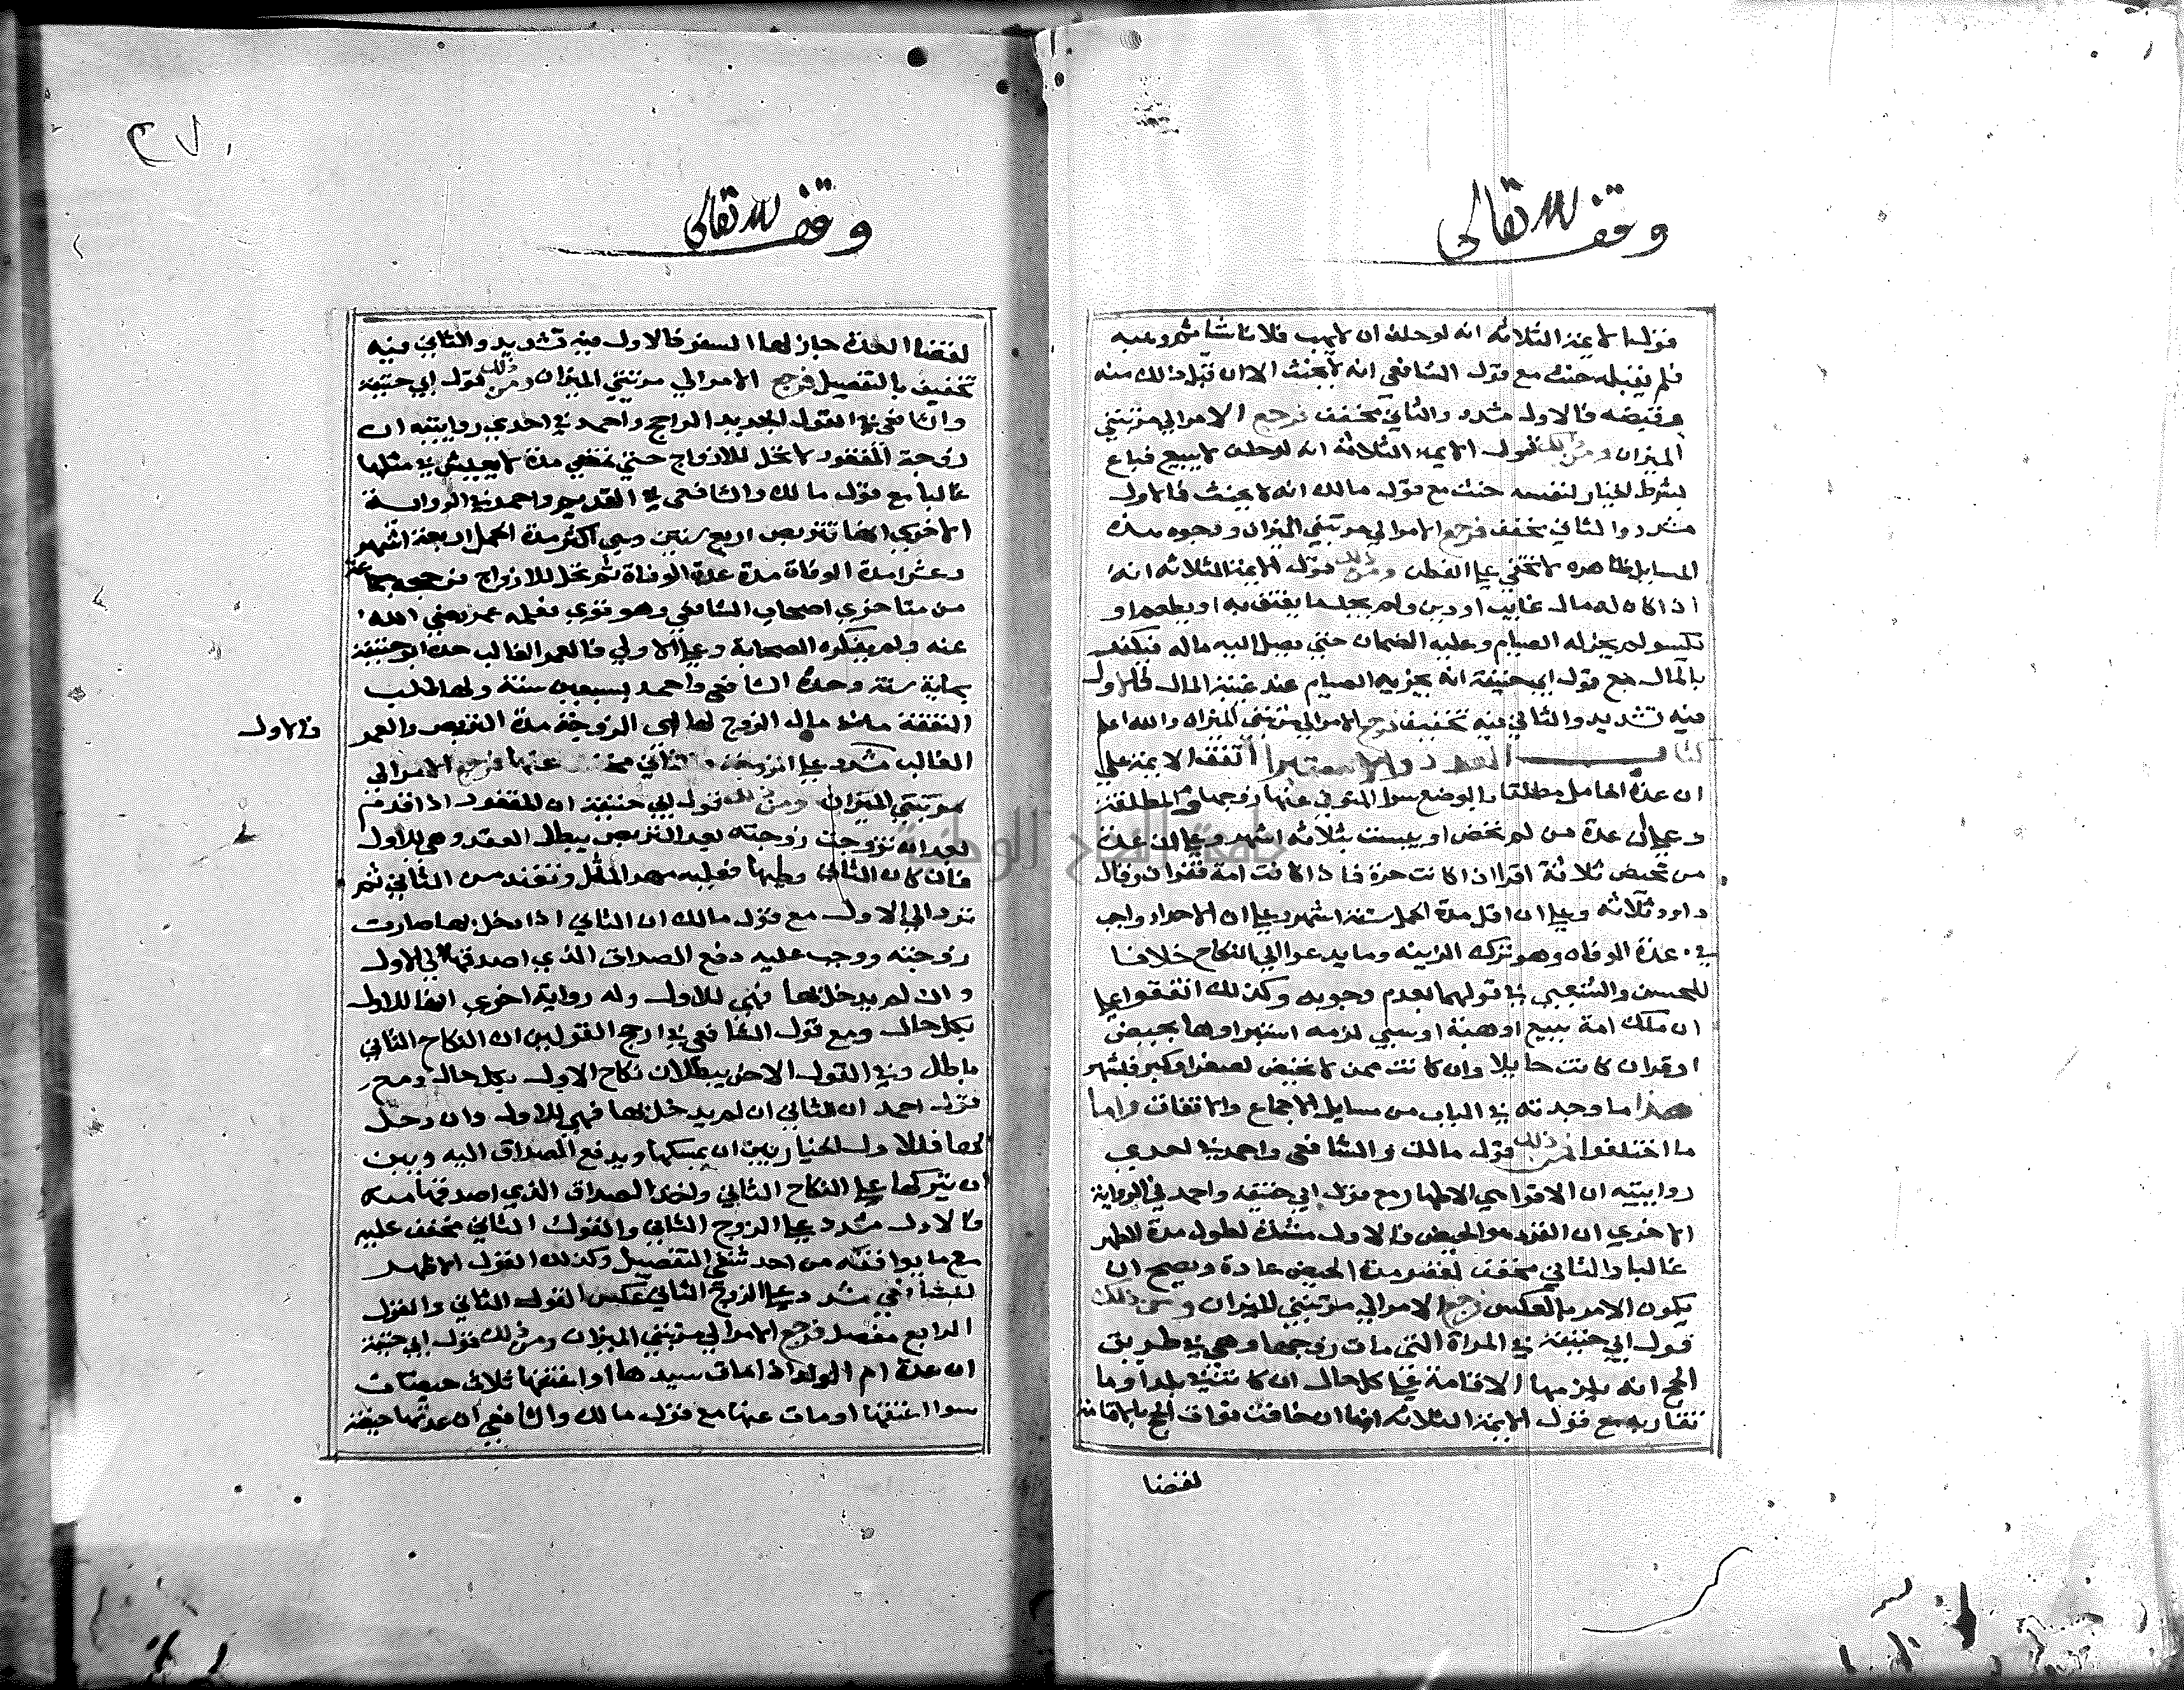 وقف لله تعالى
قول الايمة الثلاثة انه لو حلف ان لا يهب فلانا شيا ثم وهبه
فلم يقبله حنث مع قول الشافعي انه لا يحنث الا ان قبل ذلك منه
وقبضه فالاول مشدد والثاني مخفف فرجع الامر الي مرتبتي
الميزان ومن ذلك قول الايمة الثلاثة انه لو حلف لا يبيع فباع
بشرط الخيار لنفسه حنث مع قول مالك انه لا يحنث فالاول
مشدد والثاني مخفف فرجع الامر الي مرتبتي الميزان ووجوه هذه
المسايل ظاهره لا تخفي علي الفطن ومن ذلك قول الايمة الثلاثه انه
اذا كان له مال غايب او دين ولم يجد ما يعتق به او يطعم او
يكسو لم يجز له الصيام وعليه الضمان حتي يصل اليه ماله فيكفر
بالمال مع قول ابي حنيفة انه يجزيه الصيام عند غيبة المال فالاول
فيه تشديد والثاني فيه تخفيف فرجع الامر الي مرتبتي الميزان والله اعلم
كتاب العدد والاستبرا اتفق الايمة علي
ان عدة الحامل مطلقا بالوضع سوا المتوفي عنها زوجها والمطلقة
وعلي ان عدة من لم تحض او يئست بثلاثه اشهر وعلي ان عدة
من تحيض ثلاثة اقرا اذا كانت حرة فاذا كانت امة فقران وقال
داود ثلاثه وعلي ان اقل مدة الحمل ستة اشهر وعلي ان الاحداد واجب
في عدة الوفاه وهو ترك الزينه وما يدعو الي النكاح خلافا
للحسن والشعبي في قولهما بعدم وجوبه وكذلك اتفقوا علي
ان من ملك امة ببيع او هبة او سبي لزمه استبراوها بحيض
او قرا ان كانت حايلا وان كانت ممن لا تحيض لصغر او كبر فبشهر
هذا ما وجدته في الباب من مسايل الاجماع والاتفاق واما
ما اختلفوا فمن ذلك قول مالك والشافعي واحمد في احدي
روايتيه ان الاقرا هي الاطهار مع قول ابي حنيفه واحمد في الرواية
الاخري ان القرء هو الحيض فالاول مشدد لطول مدة الطهر
غالبا والثاني مخفف لقصر مدة الحيض عادة ويصح ان
يكون الامر بالعكس فرجع الامر الي مرتبتي الميزان ومن ذلك
قول ابي حنيفة في المراة التي مات زوجها وهي في طريق
الحج انه يلزمها الاقامة علي كل حال ان كانت في بلد او ما
تقاربه مع قول الايمة الثلاثه انها ان خافت فوات الحج بالاقامة
لقضا
٢٧
وقف لله تعالى
لقضا العدة جاز لها السفر فالاول فيه تشديد والثاني فيه
تخفيف بالتفصيل فرجع الامر الي مرتبتي الميزان ومن ذلك قول ابي حنيفة
والشافعي في القول الجديد الراجح واحمد في احدي روايتيه ان
زوجة المفقود لا تحل للازواج حتي تمضي مدة لا يعيش في مثلها
غالبا مع قول مالك والشافعي في القديم واحمد في الرواية
الاخري انها تتربص اربع سنين وهي اكثر مدة الحمل واربعة اشهر
وعشرا مدة الوفاة مدة عدة الوفاة ثم تحل للازواج
من متاخري اصحاب الشافعي وهو قوي بفعل عمر رضي الله
عنه ولم ينكره الصحابة وعلي الاولي فالعمر الغالب حده ابو حنيفة
بماية سنة وحده الشافعي واحمد بسبعين سنة ولها طلب
النفقة من مال الزوج لها اي الزوجة مدة التربص والعمر
فالاول
الغالب مشدد علي الزوجة والثاني مخفف عنها فرجع الامر الي
مرتبتي الميزان ومن ذلك قول ابي حنيفة ان المفقود اذا قدم
بعد ان تزوجت زوجته بعد التربص يبطل العقد وهي للاول
فان كان الثاني وطيها فعليه مهر المثل وتعتد من الثاني ثم
ترد الي الاول مع قول مالك ان الثاني اذا دخل بها صارت
زوجته ووجب عليه دفع الصداق الذي اصدقها الي الاول
وان لم يدخل بها فهي للاول وله رواية اخري انها للاول
بكل حال ومع قول الشافعي في ارجح القولين ان النكاح الثاني
باطل وفي القول الاخر يبطلان نكاح الاول بكل حال ومع
قول احمد ان الثاني ان لم يدخل بها فهي للاول وان دخل
بها فللاول الخيار بين ان يمسكها ويدفع الصداق اليه وبين
ان يتركها علي النكاح الثاني وياخذ الصداق الذي اصدقها منه
فالاول مشدد علي الزوج الثاني والقول الثاني مخفف عليه
مع ما يوافقه من احد شقي التفصيل وكذلك القول الاظهر
للشافعي مشدد علي الزوج الثاني عكس القول الثاني والقول
الرابع مفصل فرجع الامر الي مرتبتي الميزان ومن ذلك قول ابي حنيفة
ان عدة ام الولد اذا مات سيدها او اعتقها ثلاث حيضات
سوا اعتقها او مات عنها مع قول مالك والشافعي ان عدتها حيضة
جامعة النجاح الوطنية